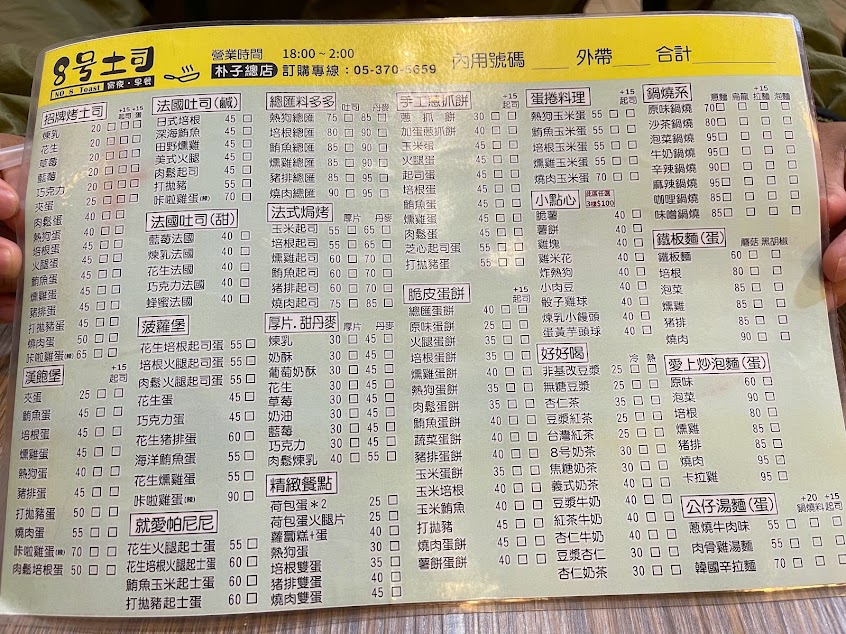 8号土司
NO 8 Toast 宵夜·早餐
營業時間 18:00~2:00
朴子總店 訂購專線：05-370-5659
內用號碼 外帶 合計
招牌烤土司 +15起司 +15蛋
煉乳 20
花生 20
草莓 20
藍莓 20
巧克力 20
夾蛋 25
肉鬆蛋 40
熱狗蛋 40
培根蛋 40
火腿蛋 40
鮪魚蛋 45
燻雞蛋 45
豬排蛋 45
打拋豬蛋 45
燒肉蛋 50
咔啦雞蛋(辣) 65
漢飽堡 +15起司
夾蛋 25
鮪魚蛋 40
培根蛋 40
燻雞蛋 45
熱狗蛋 40
豬排蛋 45
打拋豬蛋 50
燒肉蛋 55
咔啦雞蛋(辣) 70
肉鬆培根蛋 50
法國吐司(鹹)
日式培根 45
深海鮪魚 45
田野燻雞 45
美式火腿 45
肉鬆起司 45
打拋豬 55
咔啦雞蛋(辣) 70
法國吐司(甜)
藍莓法國 40
煉乳法國 40
花生法國 40
巧克力法國 40
蜂蜜法國 40
菠蘿堡
花生培根起司蛋 55
培根火腿起司蛋 55
肉鬆火腿起司蛋 55
花生蛋 40
巧克力蛋 40
花生豬排蛋 60
海洋鮪魚蛋 55
花生燻雞蛋 60
咔啦雞蛋(辣) 90
就愛帕尼尼
花生火腿起士蛋 55
花生培根火腿起士蛋 60
鮪魚玉米起士蛋 60
打拋豬起士蛋 60
總匯料多多 吐司 丹麥
熱狗總匯 75 85
培根總匯 80 90
鮪魚總匯 80 90
燻雞總匯 80 90
豬排總匯 80 90
燒肉總匯 90 95
法式焗烤 厚片 丹麥
玉米起司 55 65
培根起司 55 65
燻雞起司 60 70
鮪魚起司 60 70
豬排起司 60 70
燒肉起司 75 85
厚片.甜丹麥 厚片 丹麥
煉乳 30 45
奶酥 30 45
葡萄奶酥 30 45
花生 30 45
草莓 30 45
奶油 30 45
藍莓 30 45
巧克力 30 45
肉鬆煉乳 40 55
精緻餐點
荷包蛋*2 25
荷包蛋火腿片 25
蘿蔔糕+蛋 40
熱狗蛋 30
培根雙蛋 35
豬排雙蛋 40
燒肉雙蛋 40
手工蔥抓餅 +15起司
蔥抓餅 30
加蛋蔥抓餅 40
玉米蛋
火腿蛋
起司蛋
培根蛋
鮪魚蛋
燻雞蛋
肉鬆蛋
芝心起司蛋
打拋豬蛋
脆皮蛋餅 +15起司
總匯蛋餅
原味蛋餅 25
火腿蛋餅 35
培根蛋餅
燻雞蛋餅
熱狗蛋餅
肉鬆蛋餅 35
鮪魚蛋餅
蔬菜蛋餅
豬排蛋餅
玉米蛋餅
玉米培根
玉米鮪魚
打拋豬
燒肉蛋餅
薯餅蛋餅
蛋捲料理 +15起司
熱狗玉米蛋 55
鮪魚玉米蛋 55
培根玉米蛋 55
燻雞玉米蛋 55
燒肉玉米蛋 70
小點心 此區任選3樣$100
脆薯 40
薯餅 40
雞塊 40
雞米花 40
炸熱狗 40
小肉豆 40
骰子雞球 40
煉乳小饅頭 40
蛋黃芋頭球 40
好好喝 冷 熱
非基改豆漿 25
無糖豆漿 25
杏仁茶 35
豆漿紅茶 25
台灣紅茶 25
8号奶茶 30
焦糖奶茶 35
義式奶茶 35
豆漿牛奶 40
紅茶牛奶 40
杏仁牛奶 40
豆漿杏仁 40
杏仁奶茶 30
鍋燒系 蔥麵 烏龍 +15拉麵 +15泡麵
原味鍋燒 70
沙茶鍋燒 80
泡菜鍋燒 95
牛奶鍋燒 90
辛辣鍋燒 90
麻辣鍋燒 95
咖哩鍋燒 95
味噌鍋燒 95
鐵板麵(蛋) 蘑菇 黑胡椒
鐵板麵 60
培根 80
泡菜 85
燻雞 85
豬排 85
燒肉 90
愛上炒泡麵(蛋)
原味 60
泡菜 90
培根 80
燻雞 85
豬排 85
燒肉 95
卡拉雞 95
公仔湯麵(蛋) +20鍋燒料 +15起司
蔥燒牛肉味 55
肉骨雞湯麵 55
韓國辛拉麵 70